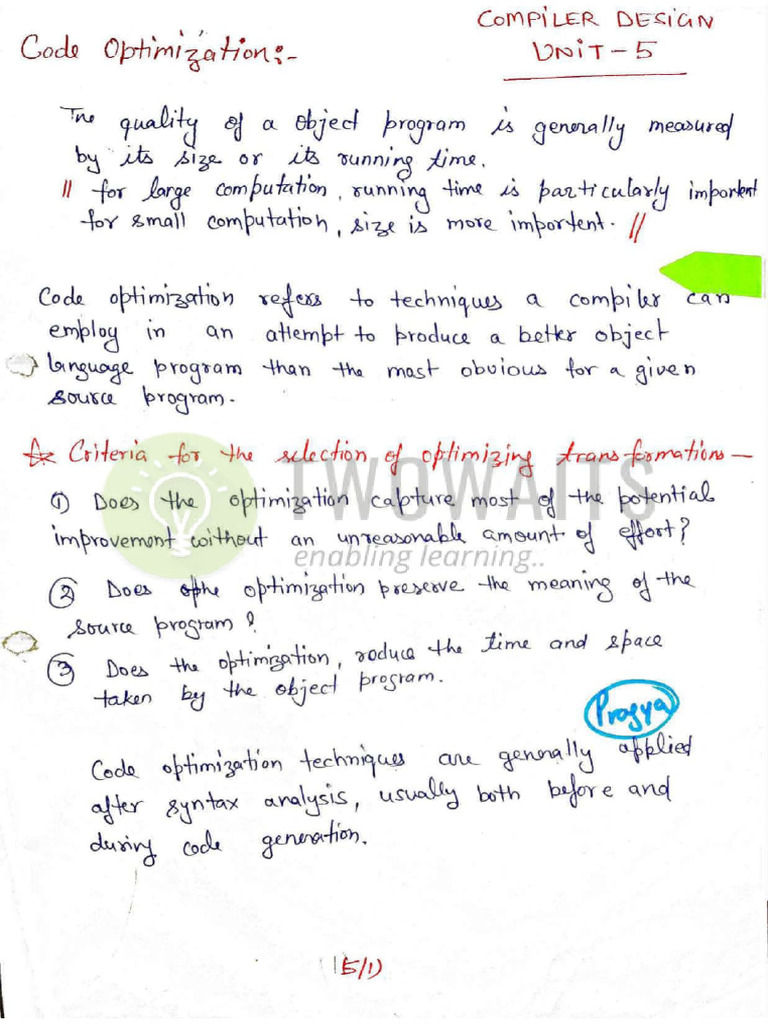 COMPILER DESIGN
Code Optimization:-
UNIT-5
The quality of a object program is generally measured
by its size or its running time.
// for large computation, running time is particularly important
for small computation, size is more importent. //
Code optimization refers to techniques a compiler can
employ in an attempt to produce a better object
language program than the most obvious for a given
source program.
☆ Criteria for the selection of optimizing transformations—
① Does the optimization capture most of the potential
improvement without an unreasonable amount of effort?
TWOWAITS
enabling learning..
② Does the optimization preserve the meaning of the
source program?
③ Does the optimization, reduce the time and space
taken by the object program.
Pragya
Code optimization techniques are generally applied
after syntax analysis, usually both before and
during code generation.
(5/1)